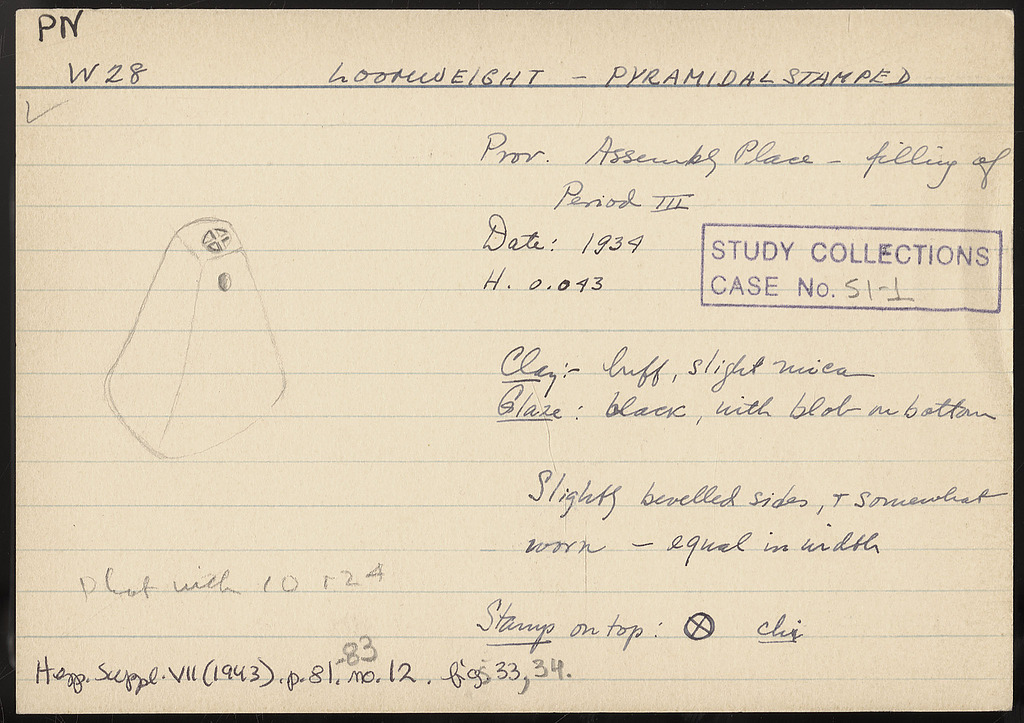 PN
W 28 LOOMWEIGHT – PYRAMIDAL STAMPED
Prov. Assembly Place – filling of
Period III
Date: 1934
H. 0.043
STUDY COLLECTIONS
CASE No. S1-1
Clay:- buff, slight mica
Glaze: black, with blob on bottom
Slightly bevelled sides, + somewhat
worn – equal in width
Phot with 10 + 24
Stamp on top: ⊗ chi
Hesp. Suppl. VII (1943). p. 81-83. no. 12. figs 33, 34.